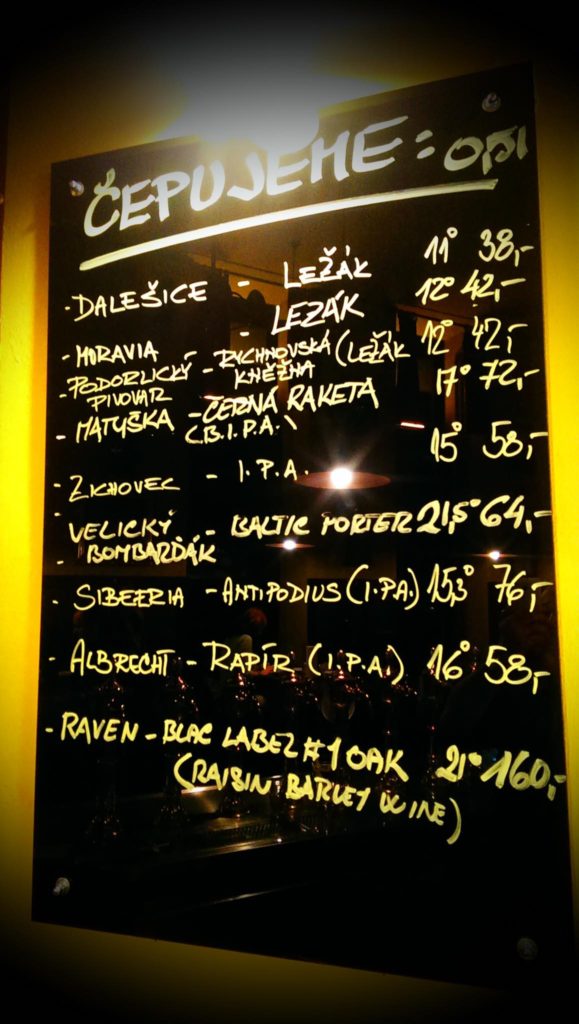 ČEPUJEME: 0,5l
- DALEŠICE - LEŽÁK 11° 38,-
- MORAVIA - LEZÁK 12° 42,-
- PODORLICKÝ PIVOVAR - RYCHNOVSKÁ KNĚŽNA (LEŽÁK 12° 42,-
- MATUŠKA - ČERNÁ RAKETA (B.I.P.A.) 17° 72,-
- ZICHOVEC - I.P.A. 15° 58,-
- VELICKÝ BOMBARĎÁK - BALTIC PORTER 21,5° 64,-
- SIBEERIA - ANTIPODIUS (I.P.A.) 15,3° 76,-
- ALBRECHT - RAPÍR (I.P.A.) 16° 58,-
- RAVEN - BLAC LABEL #1 OAK 21° 160,-
(RAISIN BARLEY WINE)